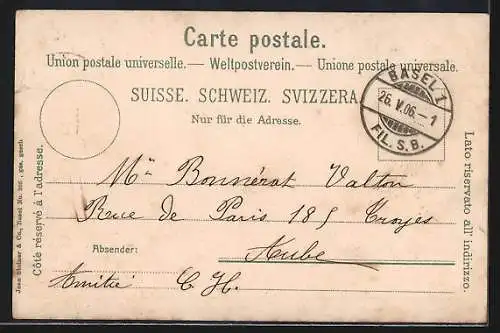 Carte postale.
Union postale universelle.— Weltpostverein.— Unione postale universale.
SUISSE. SCHWEIZ. SVIZZERA.
Nur für die Adresse.
BASEL 1
26.V.06.-1
FIL. S. B.
Côté réservé à l'adresse.
Lato riservato all' indirizzo.
Mr Bonnérat Valton
Rue de Paris 185 Troyes
Aube
Absender:
Amitié C. H.